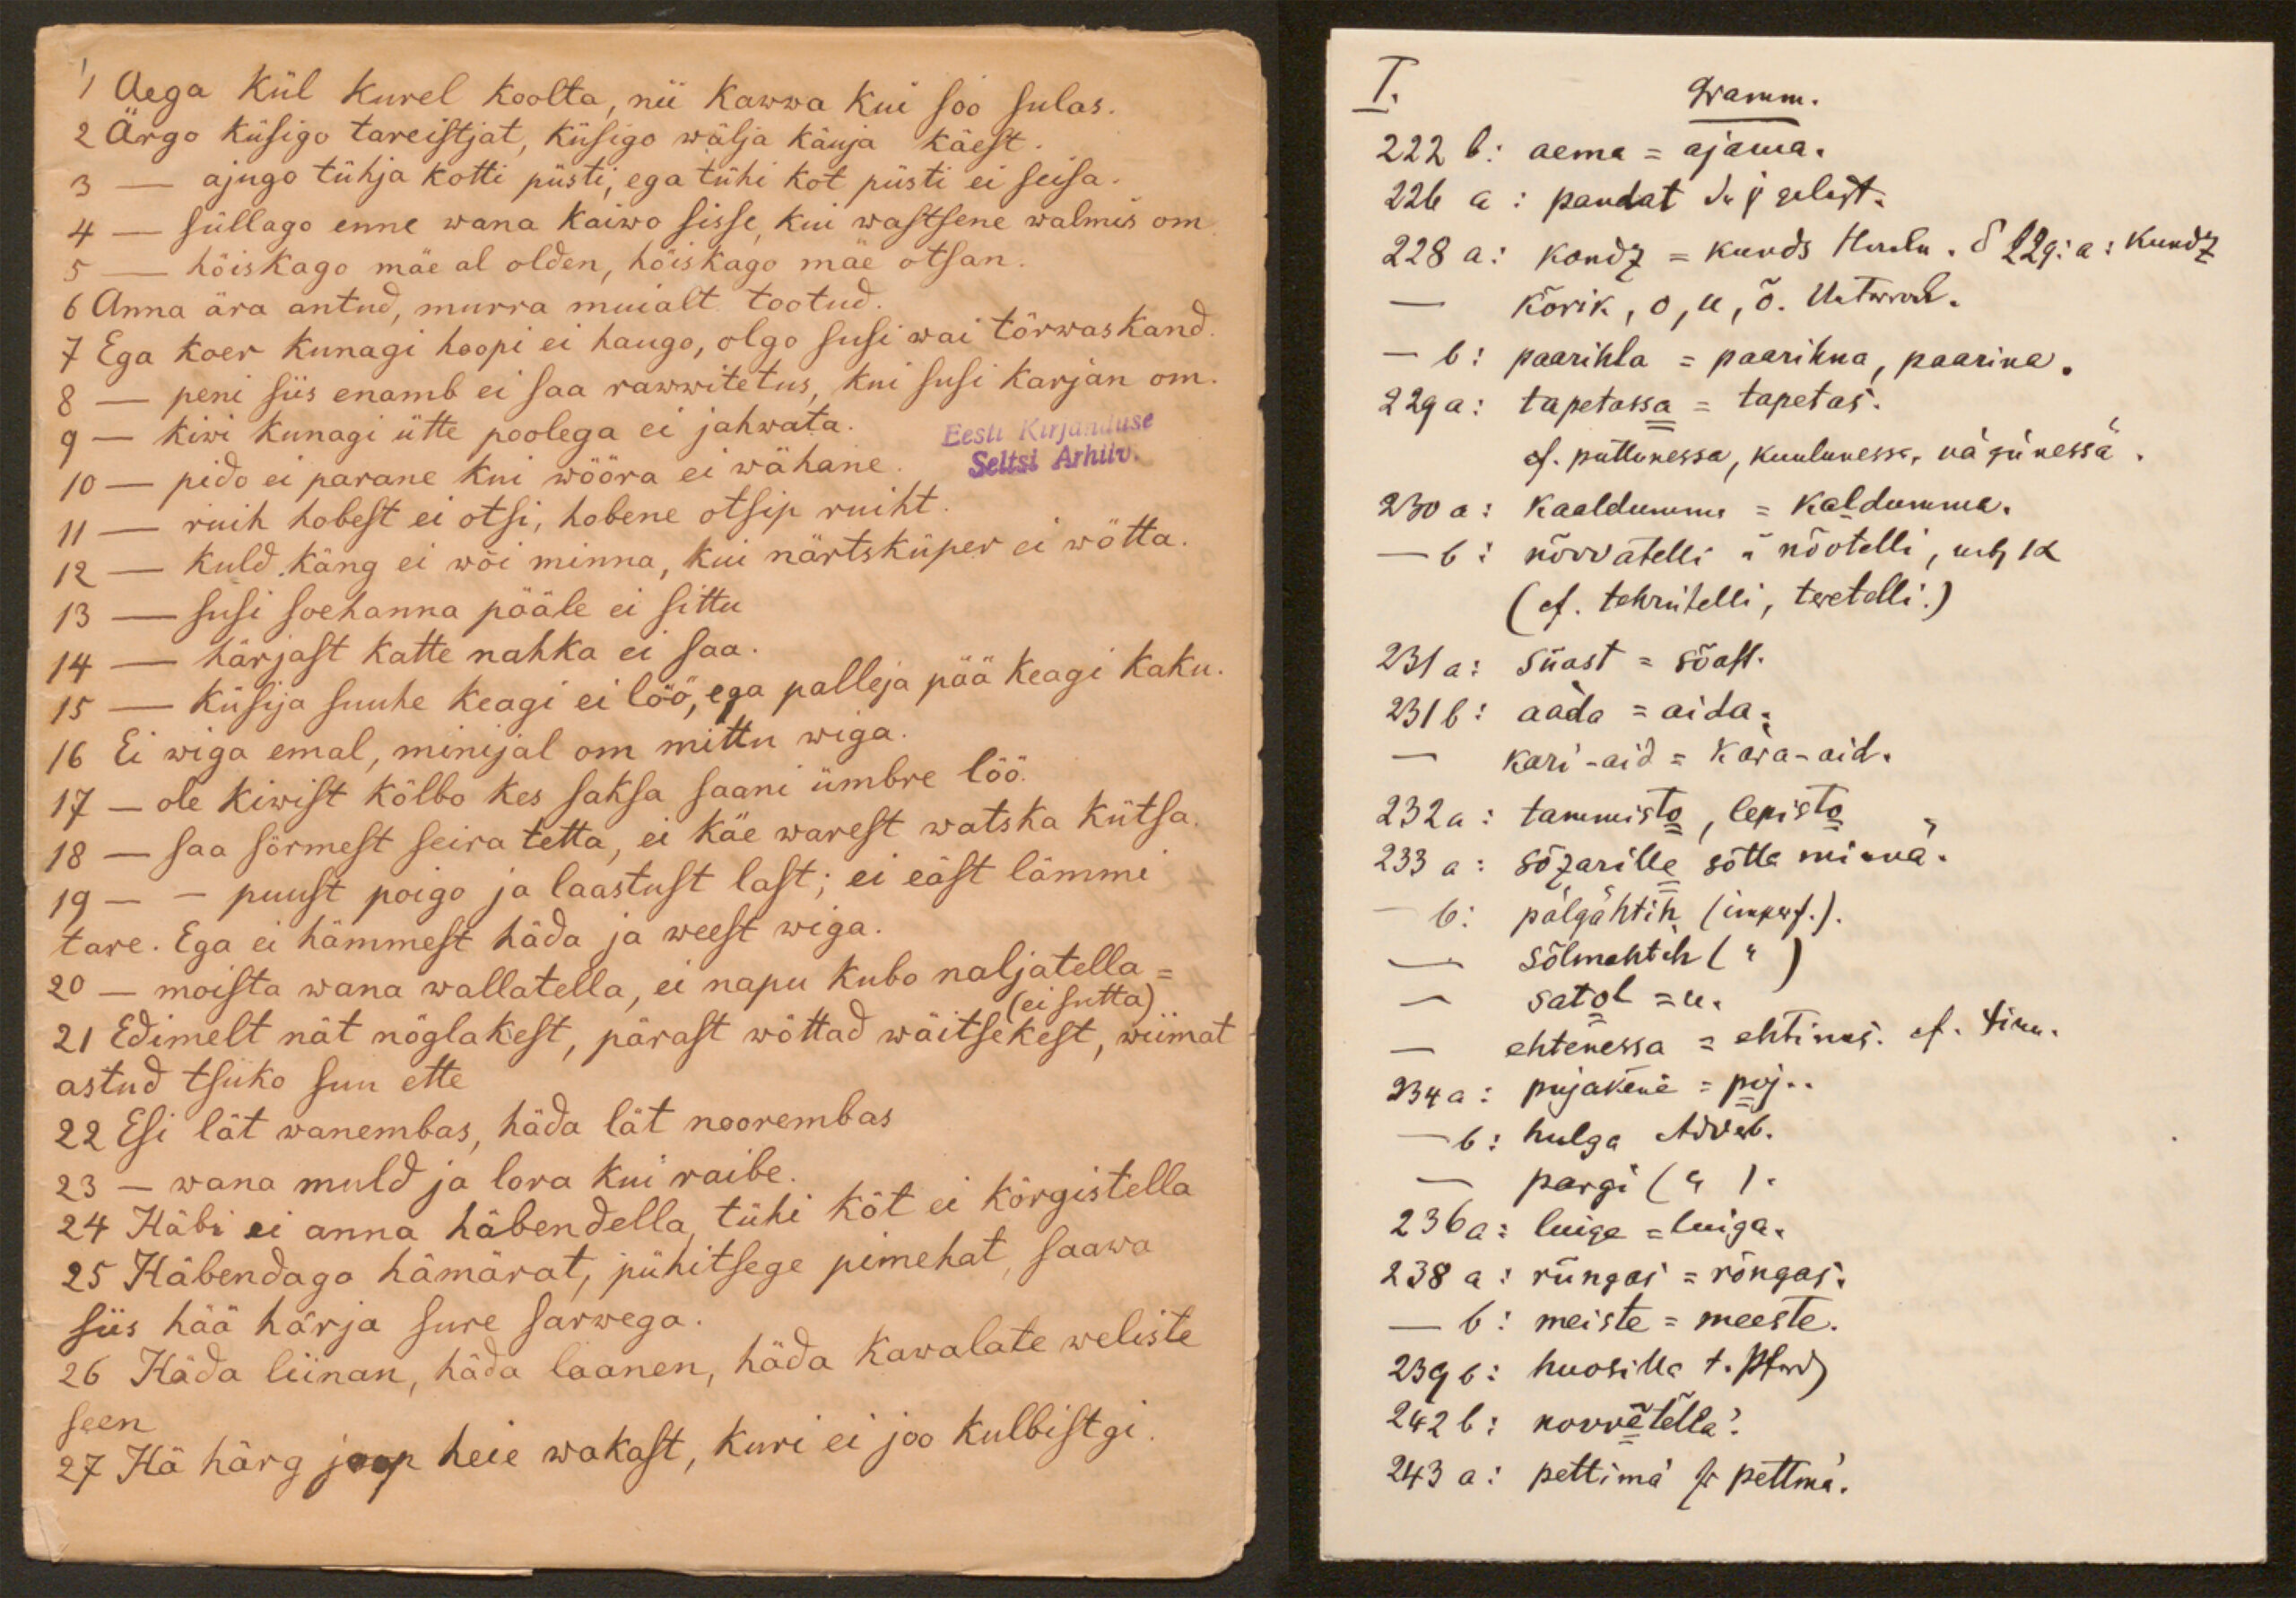 1 Aega kül kurel koolta, nii kawwa kui soo sulas.
2 Ärgo küsigo tareistjat, küsigo wälja käuja käest.
3 — ajugo tühja kotti püsti, ega tühi kot püsti ei seisa.
4 — süllago enne wana kaiwo sisse, kui wastsene walmis om
5 — höiskago mäe al olden, höiskago mäe otsan.
6 Anna ära antud, murra muialt tootud.
7 Ega koer kunagi hoopi ei haugo, olgo susi wai törwaskand.
8 — peni siis enamb ei saa rawwitetus, kui susi karjan om.
9 — kiwi kunagi ütte poolega ei jahwata.
Eesti Kirjanduse
Seltsi Arhiiv.
10 — pido ei parane kui wööra ei wähane.
11 — ruih hobest ei otsi, hobene otsip ruiht.
12 — kuld käng ei wöi minna, kui närtsküper ei wötta.
13 — susi soehanna pääle ei sittu
14 — härjast katte nahka ei saa.
15 — küsija suuhe keagi ei löö, ega palleja pää keagi kaku.
16 Ei wiga emal, minijal om mittu wiga.
17 — ole kiwist kölbo kes saksa saani ümbre löö.
18 — saa sörmest seira tetta, ei käe warest watska kütsa.
19 — — puust poigo ja laastust last; ei eäst lämmi
tare. Ega ei hämmest häda ja weest wiga.
20 — moista wana wallatella, ei napu kubo naljatella =
(ei sutta)
21 Edimelt nät nöglakest, pärast wöttad wäitsekest, wiimat
astud tsuko suu ette
22 Esi lät wanembas, häda lät noorembas
23 — wana muld ja lora kui raibe.
24 Häbi ei anna häbendella, tühi köt ei körgistella
25 Häbendago hämärat, pühitsege pimehat, saawa
siis hää härja sure sarwega.
26 Häda liinan, häda laanen, häda kawalate weliste
seen
27 Hä härg joop heie wakast, kuri ei joo kulbistgi.
I.
Gramm.
222 b: aema = ajama.
226 a: pandat
228 a: kondz = kunds 229: a: kundz
— kõrik, o, u, õ.
— b: paarihla = paarihna, paarina.
229 a: tapetassa = tapetas.
cf. puttunessa, kuulunessa, nägünessä.
230 a: kaaldumma = kaldumma.
— b: nõvvatelli nõotelli,
(cf. tehrütelli, teretelli.)
231 a: süast = sõast.
231 b: aada = aida.
— kari-aid = kara-aid.
232 a: tammisto, lepisto
233 a: sõzarille sõtta minnä.
— b: palgahtih (imperf.).
— sõlmahtih ( " )
— satol = u.
— ehtenessa = ehtines. cf.
234 a: pujakene = poj..
— b: hulga Adverb.
— pargi ( " ).
236 a: luige = luiga.
238 a: rüngas = rõngas.
— b: meiste = meeste.
239 b: huosilla t. Pferd
242 b: novvetella?
243 a: pettimä pettmä.